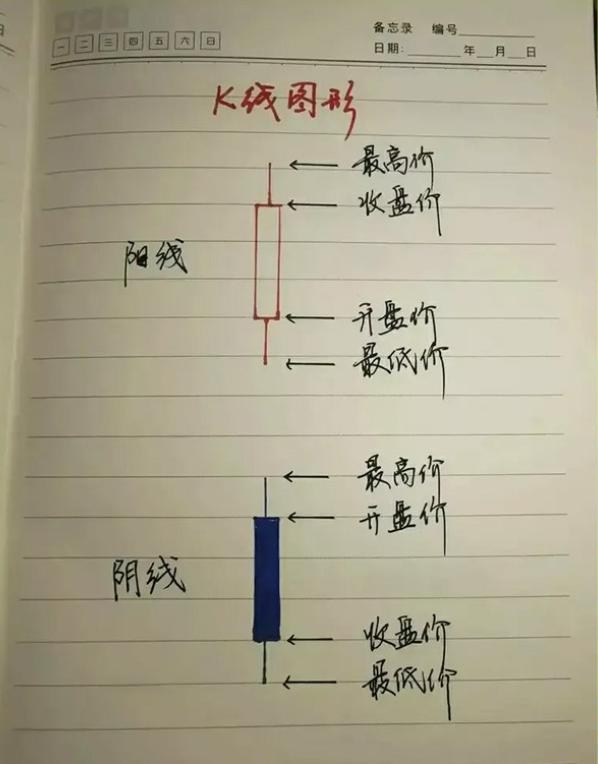 一 二 三 四 五 六 日
备忘录 编号
日期: 年 月 日
K线图形
最高价
收盘价
阳线
开盘价
最低价
最高价
开盘价
阴线
收盘价
最低价